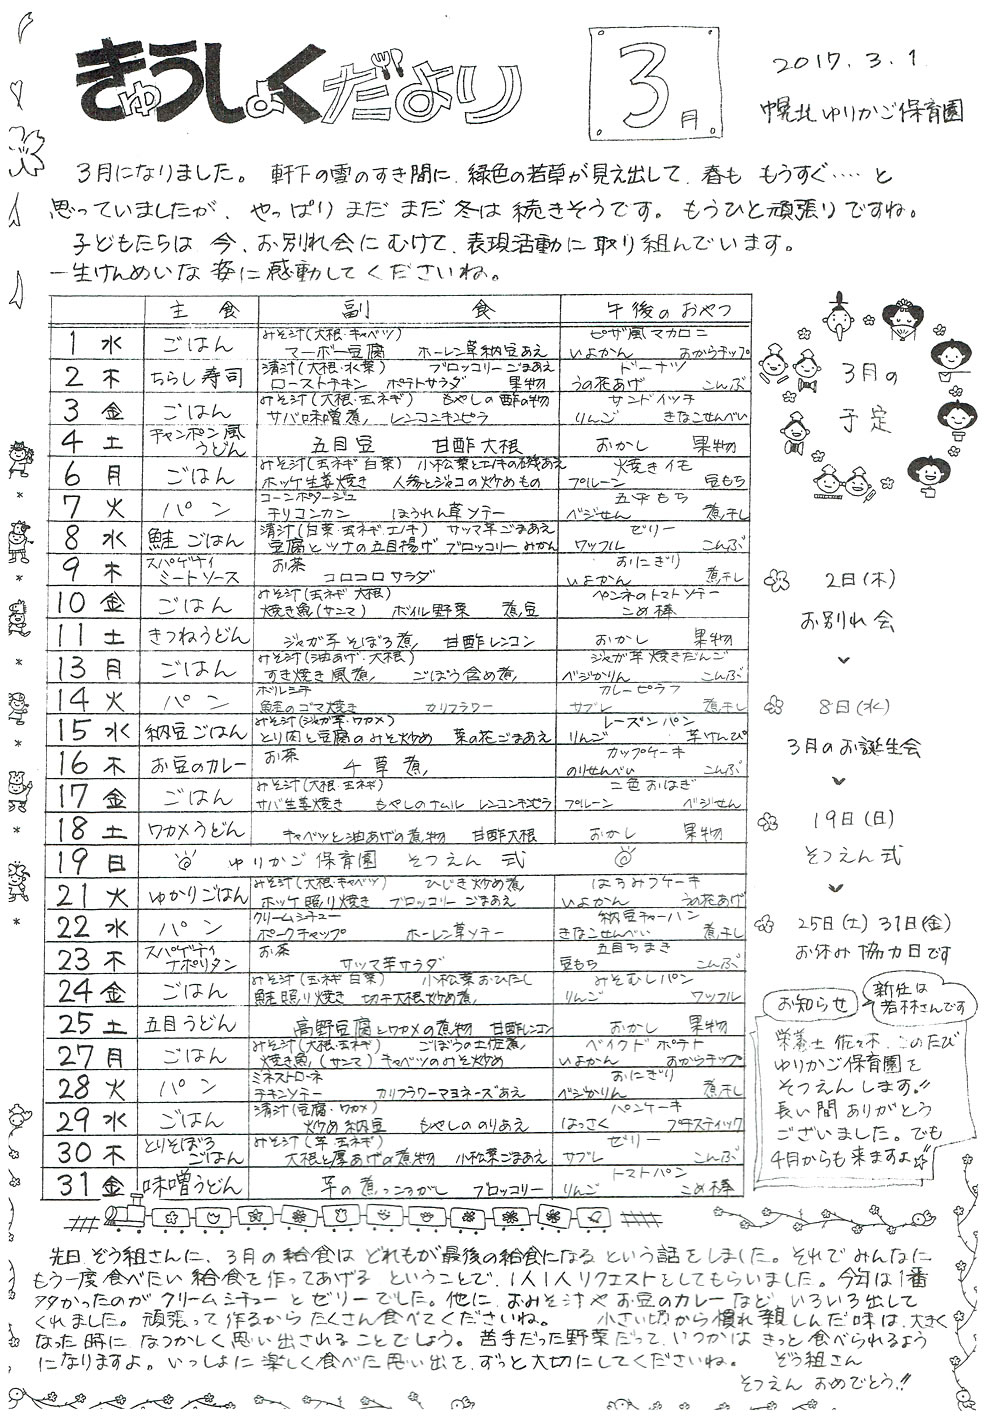 きゅうしょくだより
3月
2017.3.1
幌北ゆりかご保育園
3月になりました。軒下の雪のすき間に、緑色の若草が見え出して、春も もうすぐ‥‥と
思っていましたが、やっぱり まだ まだ 冬は 続きそうです。もうひと頑張りですね。
子どもたちは 今、お別れ会に むけて、表現活動に 取り組んでいます。
一生けんめいな 姿に 感動してくださいね。
主食 副食 午後のおやつ
1 水 ごはん みそ汁(大根・キャベツ) マーボー豆腐 ホーレン草納豆あえ ピザ風マカロニ いよかん おからチップ
2 木 ちらし寿司 清汁(大根・水菜) ブロッコリーごまあえ ローストチキン ポテトサラダ 果物 ドーナツ うの花あげ こんぶ
3 金 ごはん みそ汁(大根・玉ネギ) もやしの酢の物 サバ味噌煮 レンコンキンピラ サンドイッチ りんご きなこせんべい
4 土 チャンポン風うどん 五目豆 甘酢大根 おかし 果物
6 月 ごはん みそ汁(玉ネギ 白菜) 小松菜とエノキの磯あえ ホッケ生姜焼き 人参とジャコの炒めもの 焼きイモ プルーン 豆もち
7 火 パン コーンポタージュ チリコンカン ほうれん草ソテー 五平もち ベジせん 煮干し
8 水 鮭ごはん 清汁(白菜・玉ネギ・エノキ) サツマ芋ごまあえ 豆腐とツナの五目揚げ ブロッコリー みかん ゼリー ワッフル こんぶ
9 木 スパゲティミートソース お茶 コロコロサラダ おにぎり いよかん 煮干し
10 金 ごはん みそ汁(玉ネギ 大根) 焼き魚(サンマ) ボイル野菜 煮豆 ペンネのトマトソテー こめ棒
11 土 きつねうどん ジャガ芋そぼろ煮 甘酢レンコン おかし 果物
13 月 ごはん みそ汁(油あげ・大根) すき焼き風煮 ごぼう含め煮 ジャガ芋焼きだんご ベジかりん こんぶ
14 火 パン ボルシチ 鮭のゴマ焼き カリフラワー カレーピラフ サブレ 煮干し
15 水 納豆ごはん みそ汁(ジャガ芋・ワカメ) とり肉と豆腐のみそ炒め 菜の花ごまあえ レーズンパン りんご 芋けんぴ
16 木 お豆のカレー お茶 千草煮 カップケーキ のりせんべい こんぶ
17 金 ごはん みそ汁(大根・玉ネギ) サバ生姜焼き もやしのナムル レンコンキンピラ 二色おはぎ プルーン ベジせん
18 土 ワカメうどん キャベツと油あげの煮物 甘酢大根 おかし 果物
19 日 ゆりかご保育園 そつえん式
21 火 ゆかりごはん みそ汁(大根・キャベツ) ひじき炒め煮 ホッケ照り焼き ブロッコリーごまあえ はちみつケーキ いよかん うの花あげ
22 水 パン クリームシチュー ポークチャップ ホーレン草ソテー 納豆チャーハン きなこせんべい 煮干し
23 木 スパゲティナポリタン お茶 サツマ芋サラダ 五目ちまき 豆もち こんぶ
24 金 ごはん みそ汁(玉ネギ 白菜) 小松菜おひたし 鮭照り焼き 切干大根炒め煮 みそむしパン りんご ワッフル
25 土 五目うどん 高野豆腐とワカメの煮物 甘酢レンコン おかし 果物
27 月 ごはん みそ汁(大根・玉ネギ) ごぼうの土佐煮 焼き魚(サンマ) キャベツのみそ炒め ベイクドポテト いよかん おからチップ
28 火 パン ミネストローネ チキンソテー カリフラワーマヨネーズあえ おにぎり ベジかりん 煮干し
29 水 ごはん 清汁(豆腐・ワカメ) 炒め納豆 もやしののりあえ パンケーキ はっさく プチスティック
30 木 とりそぼろごはん みそ汁(芋 玉ネギ) 大根と厚あげの煮物 小松菜ごまあえ ゼリー サブレ こんぶ
31 金 味噌うどん 芋の煮っころがし ブロッコリー トマトパン りんご こめ棒
3月の
予定
2日(木)
お別れ会
8日(水)
3月のお誕生会
19日(日)
そつえん式
25日(土) 31日(金)
お休み協力日です
お知らせ
新任は
若林さんです
栄養士 佐々木、このたび
ゆりかご保育園を
そつえんします!!
長い間ありがとう
ございました。でも
4月からも来ますよ
先日 ぞう組さんに、3月の給食は どれもが最後の給食になる という話をしました。それで みんなに
もう一度食べたい 給食を 作ってあげる ということで、1人1人リクエストとしてもらいました。今年は1番
多かったのがクリームシチューとゼリーでした。他に、おみそ汁やお豆のカレーなど、いろいろ出して
くれました。頑張って作るから たくさん食べてくださいね。 小さい切から慣れ親しんだ味は、大きく
なった時に、なつかしく思い出されることでしょう。苦手だった野菜だって、いつかは きっと食べられるよう
になりますよ。いっしょに 楽しく食べた思い出を、ずっと大切にしてくださいね。 ぞう組さん
そつえん おめでとう!!